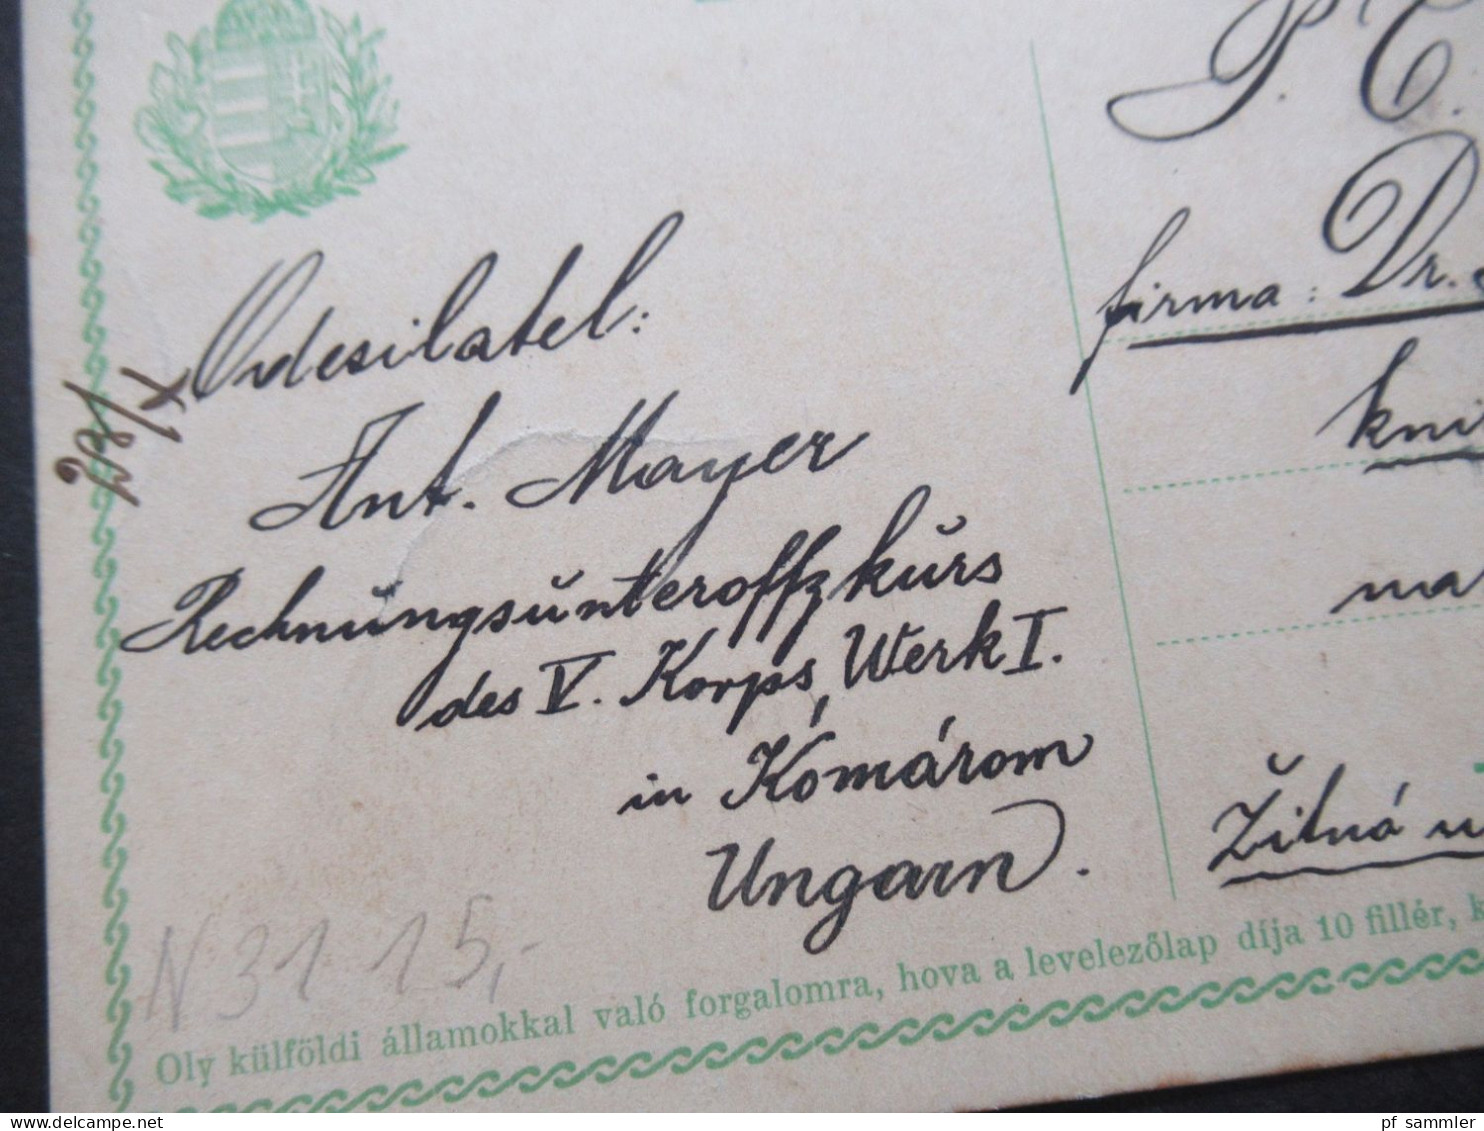 P. C.
firma: Dr.
Odesilatel:
Ant. Mayer
Rechnungsŭnteroffzkŭrs
des V. Korps, Werk I.
in Komárom
Ungarn.
Žitná u
N 31 15,-
Oly külföldi államokkal való forgalomra, hova a levelezőlap díja 10 fillér, k
pf_sammler